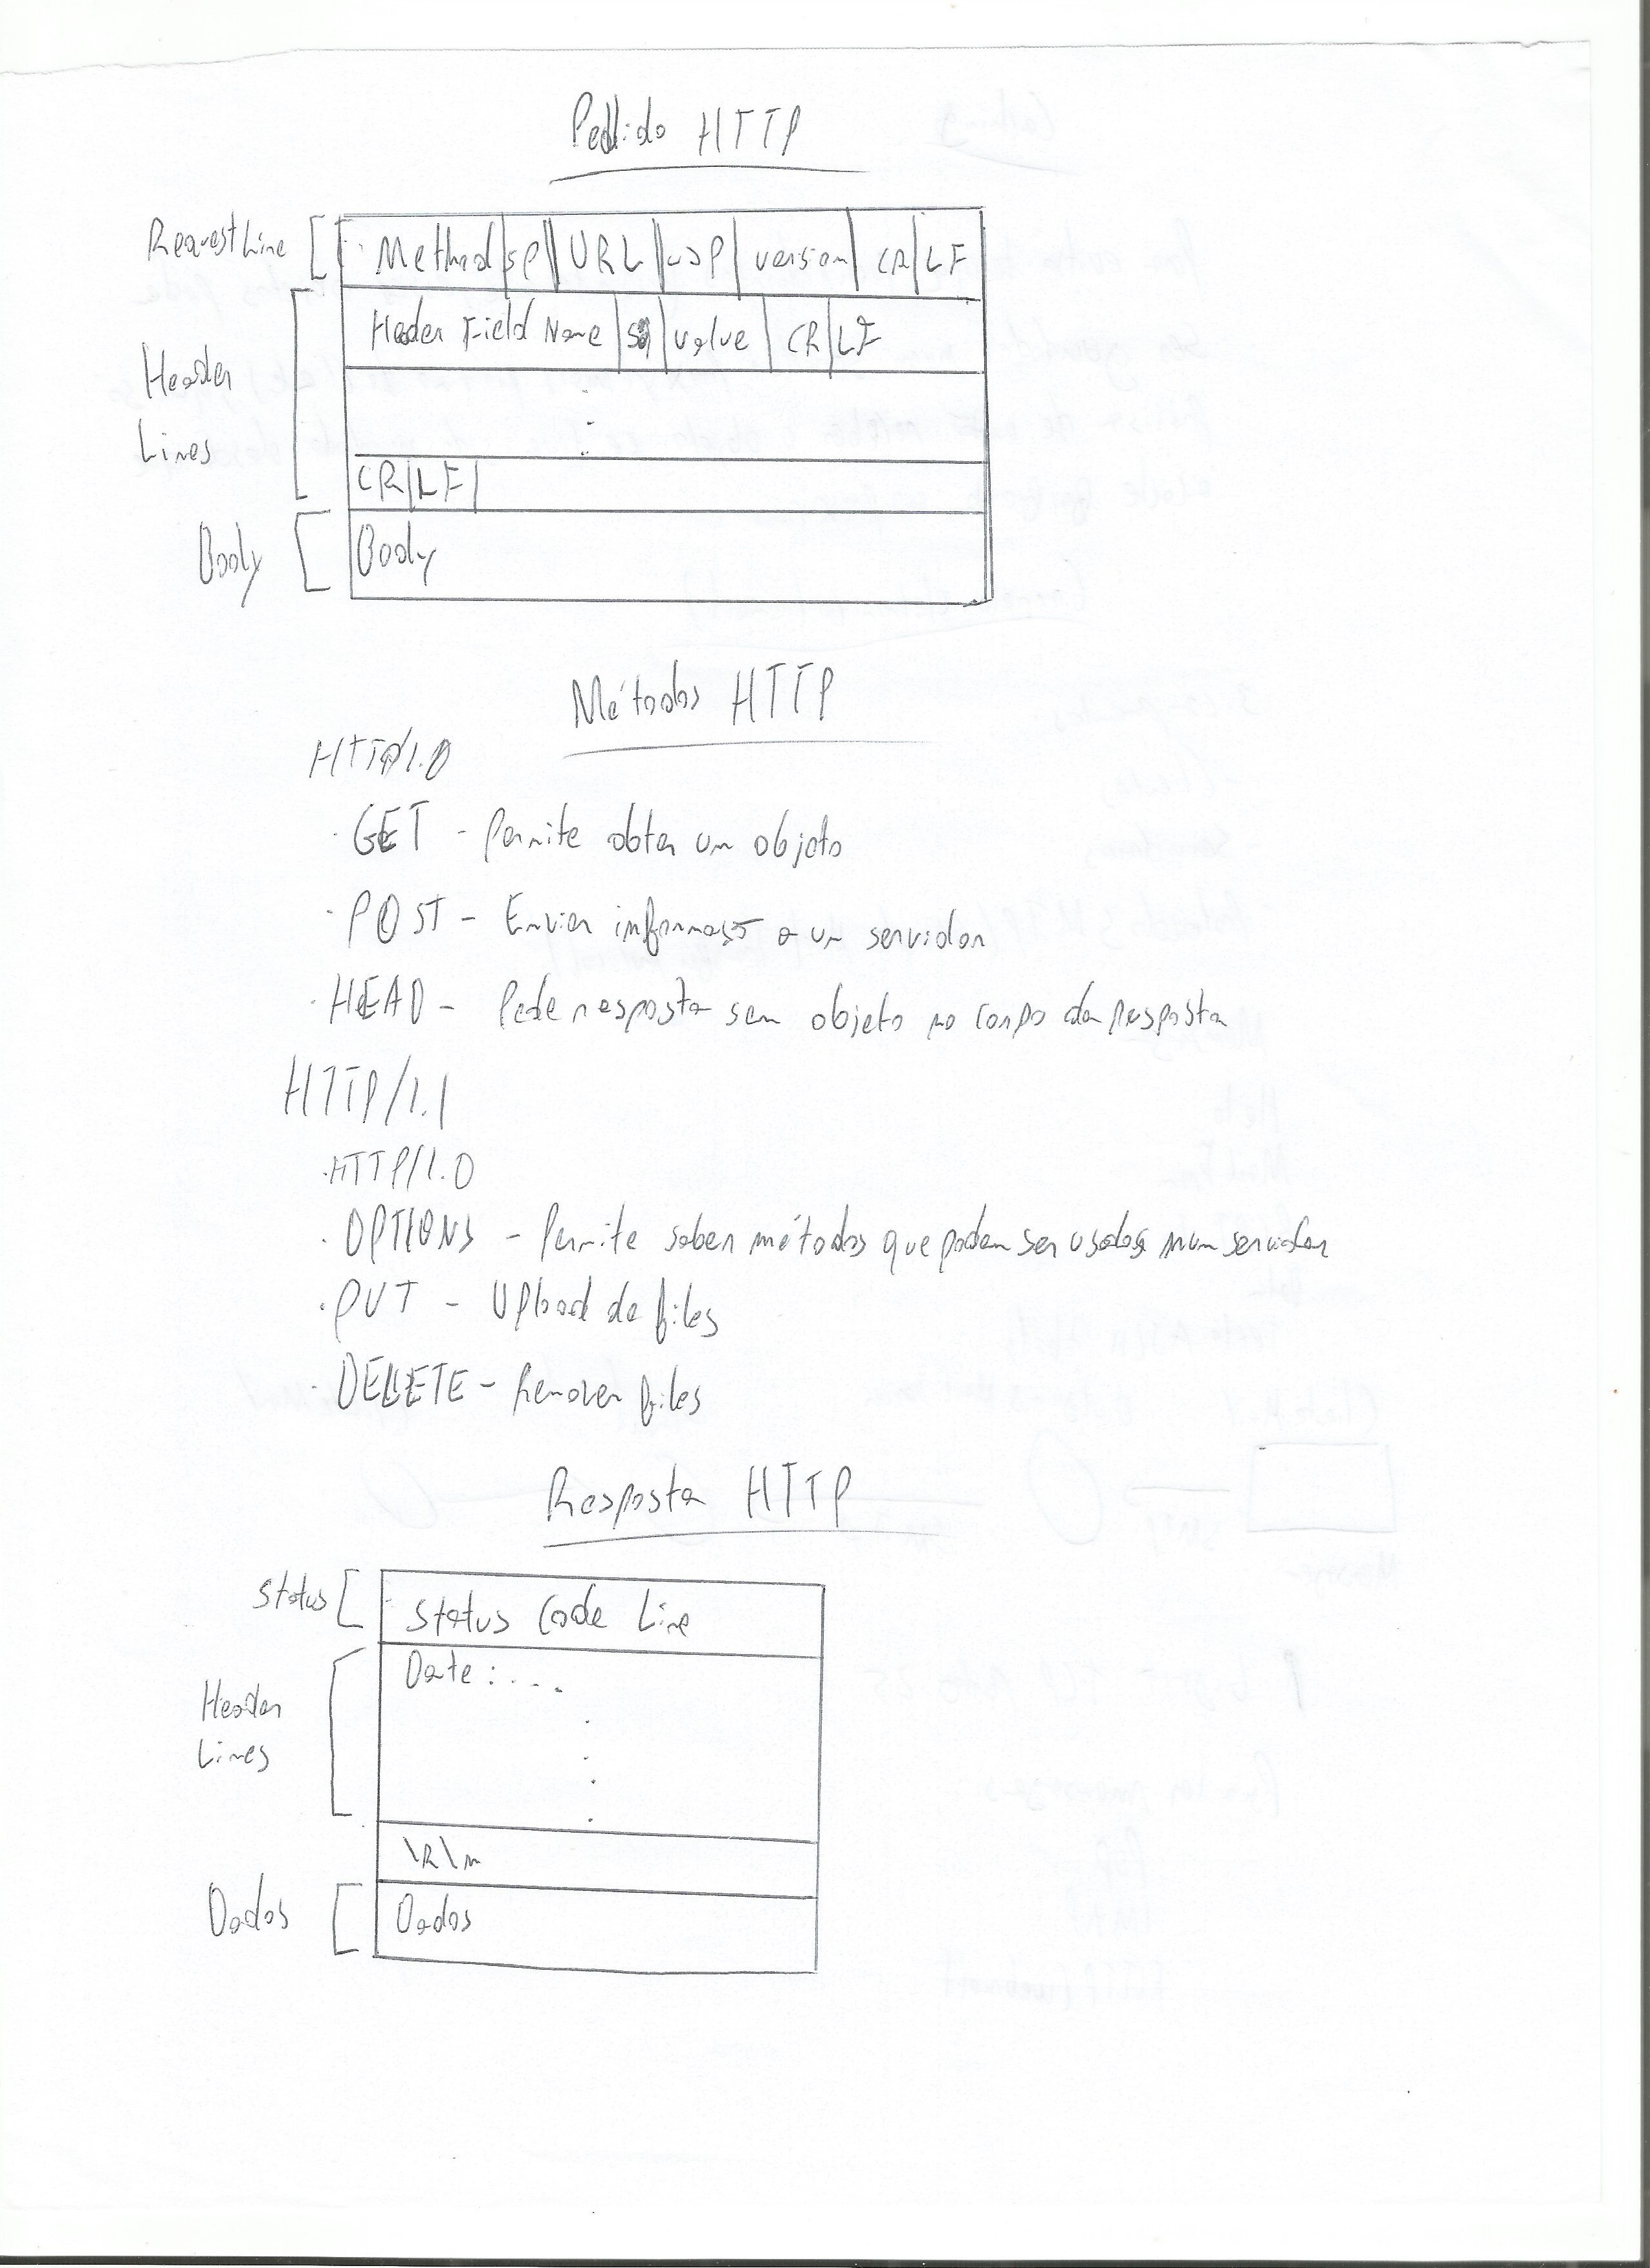 Pedido HTTP
Request Line Method sp URL sp version CR LF
Header Lines
Header Field Name value CR LF
CR LF
Body Body
Métodos HTTP
HTTP/1.0
· GET - Permite obter um objeto
· POST - Enviar informação a um servidor
· HEAD - Pede resposta sem objeto no corpo da resposta
HTTP/1.1
· HTTP/1.0
· OPTIONS - Permite saber métodos que podem ser usados num servidor
· PUT - Upload de files
· DELETE - Remover files
Resposta HTTP
Status Status Code Line
Date : . . . .
Header
Lines
\R\n
Dados Dados